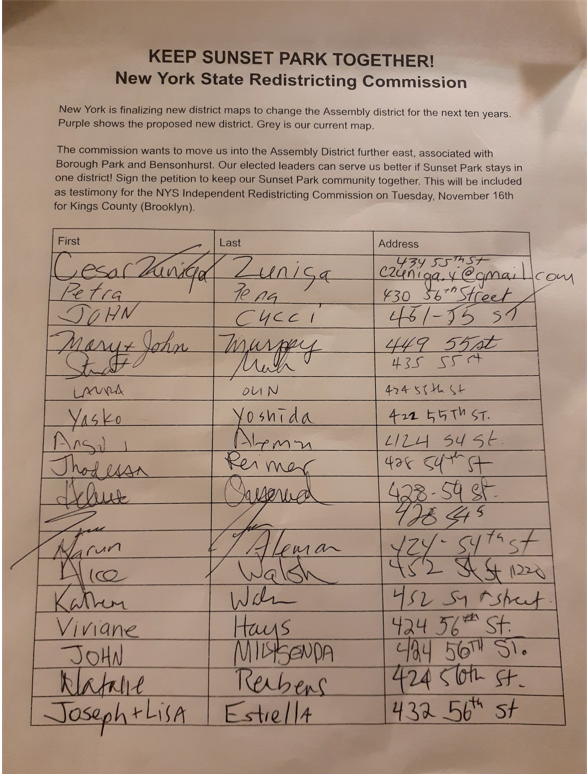 KEEP SUNSET PARK TOGETHER!
New York State Redistricting Commission
New York is finalizing new district maps to change the Assembly district for the next ten years.
Purple shows the proposed new district. Grey is our current map.
The commission wants to move us into the Assembly District further east, associated with
Borough Park and Bensonhurst. Our elected leaders can serve us better if Sunset Park stays in
one district! Sign the petition to keep our Sunset Park community together. This will be included
as testimony for the NYS Independent Redistricting Commission on Tuesday, November 16th
for Kings County (Brooklyn).
First Last Address
434 55th St
Cesar Zuniga Zuniga czuniga.y@gmail.com
Petra Pena 430 56th Street
JOHN CUCCI 451-55 ST
Mary + John Murppy 449 55 st
435 55 st
LAURA OLIN 424 55th St
Yasko Yoshida 422 55TH ST.
Aleman 424 54 st.
428 54th St
428-54 St.
428
Aleman 424-54th st
Alice Walsh 452 St
452 54 street
Viviane Hays 424 56th St.
JOHN 424 56TH ST.
Natalie Rubens 424 56th st.
Joseph + LISA Estrella 432 56th st